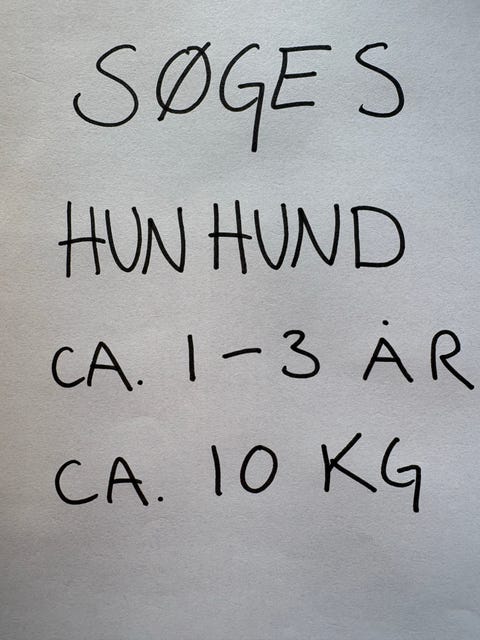 SØGES
HUN HUND
CA. 1-3 ÅR
CA. 10 KG